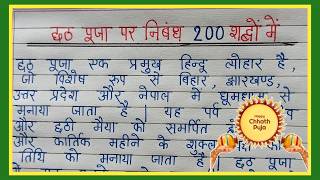 छठ पूजा पर निबंध 200 शब्दों में
छठ पूजा एक प्रमुख हिन्दू त्योहार है,
जो विशेष रूप से बिहार, झारखण्ड,
उत्तर प्रदेश और नेपाल में धूमधाम से
मनाया जाता है। यह पर्व
और छठी मैया को समर्पित
और कार्तिक महीने के शुक्ल
तिथि को मनाया जाता है। छठ पूजा
Happy
Chhath
Puja